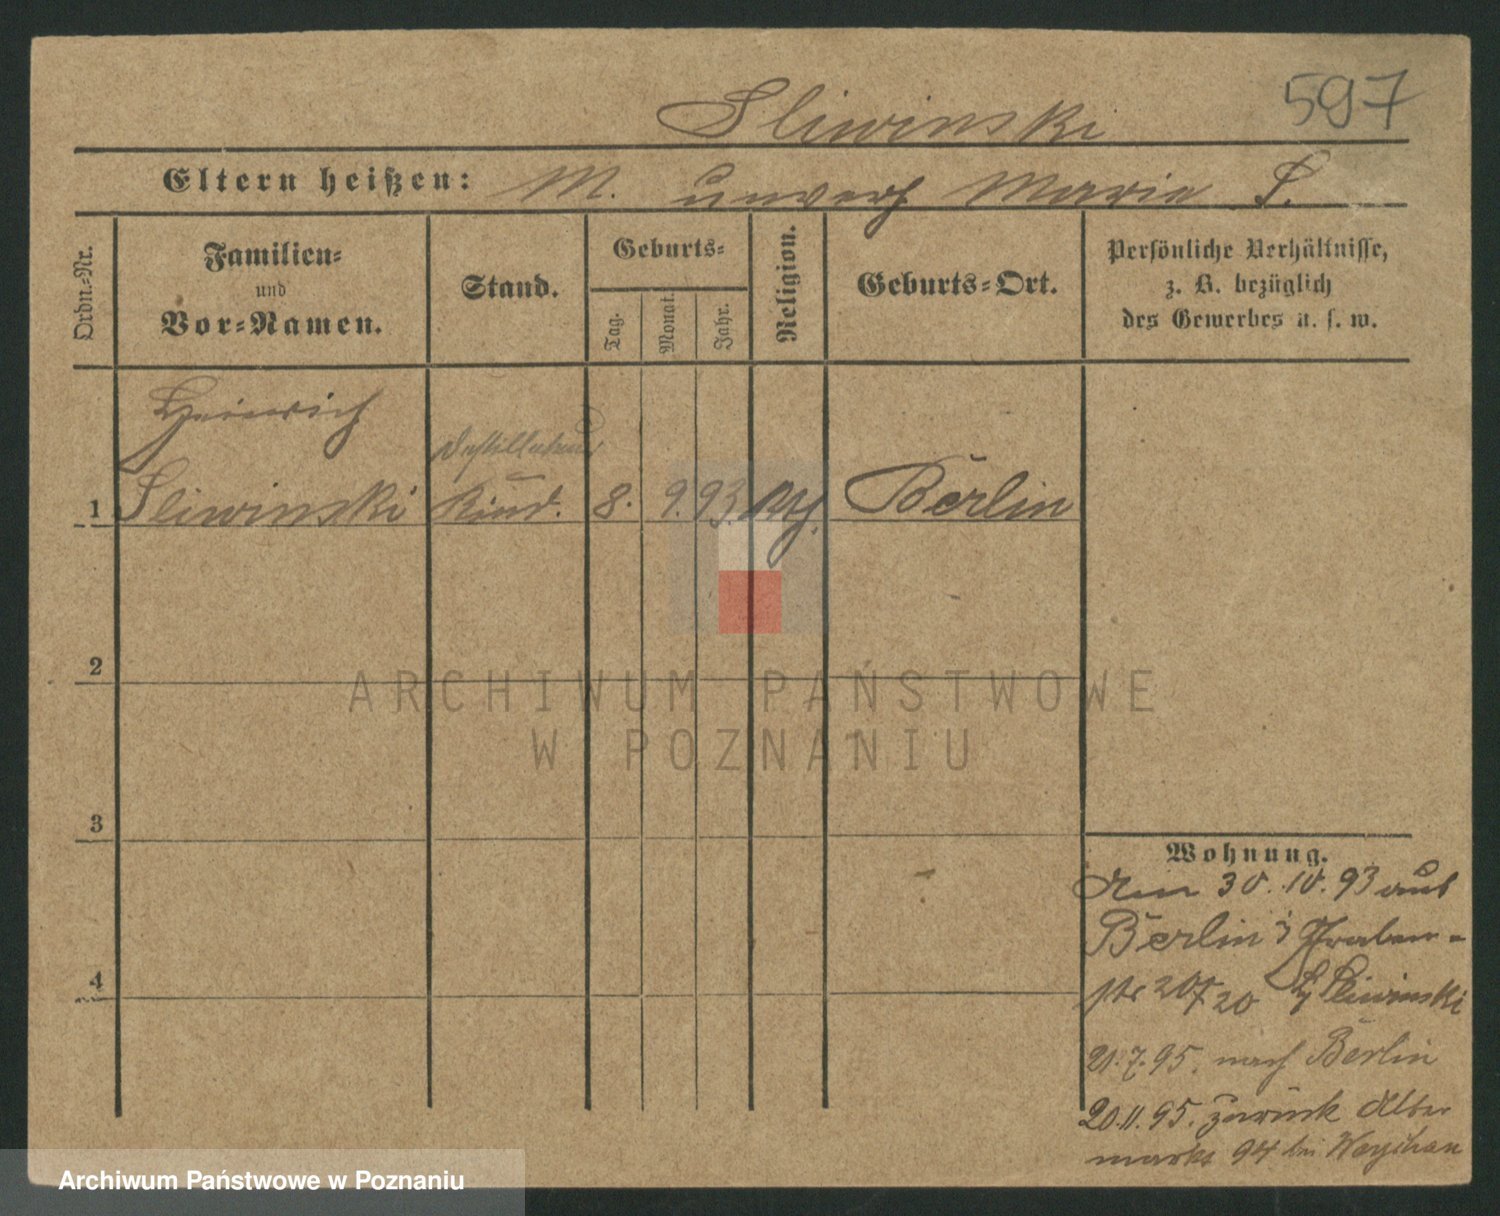 597
Sliwinski
Eltern heißen: M. unverh Maria S.
Ordn.-Nr.
Familien-
und
Vor-Namen.
Stand.
Geburts-
Tag.
Monat.
Jahr.
Religion.
Geburts-Ort.
Persönliche Verhältnisse,
z. B. bezüglich
des Gewerbes u. s. w.
Heinrich
Destillateur
1 Sliwinski Kind. 8. 9. 93. Berlin
2
3
4
Wohnung.
30.10.93 aus
Berlin Graben-
str 20 Sliwinski
21.7.95. nach Berlin
20.11.95. zurück Alter
markt 94 bei
ARCHIWUM PAŃSTWOWE
W POZNANIU
Archiwum Państwowe w Poznaniu